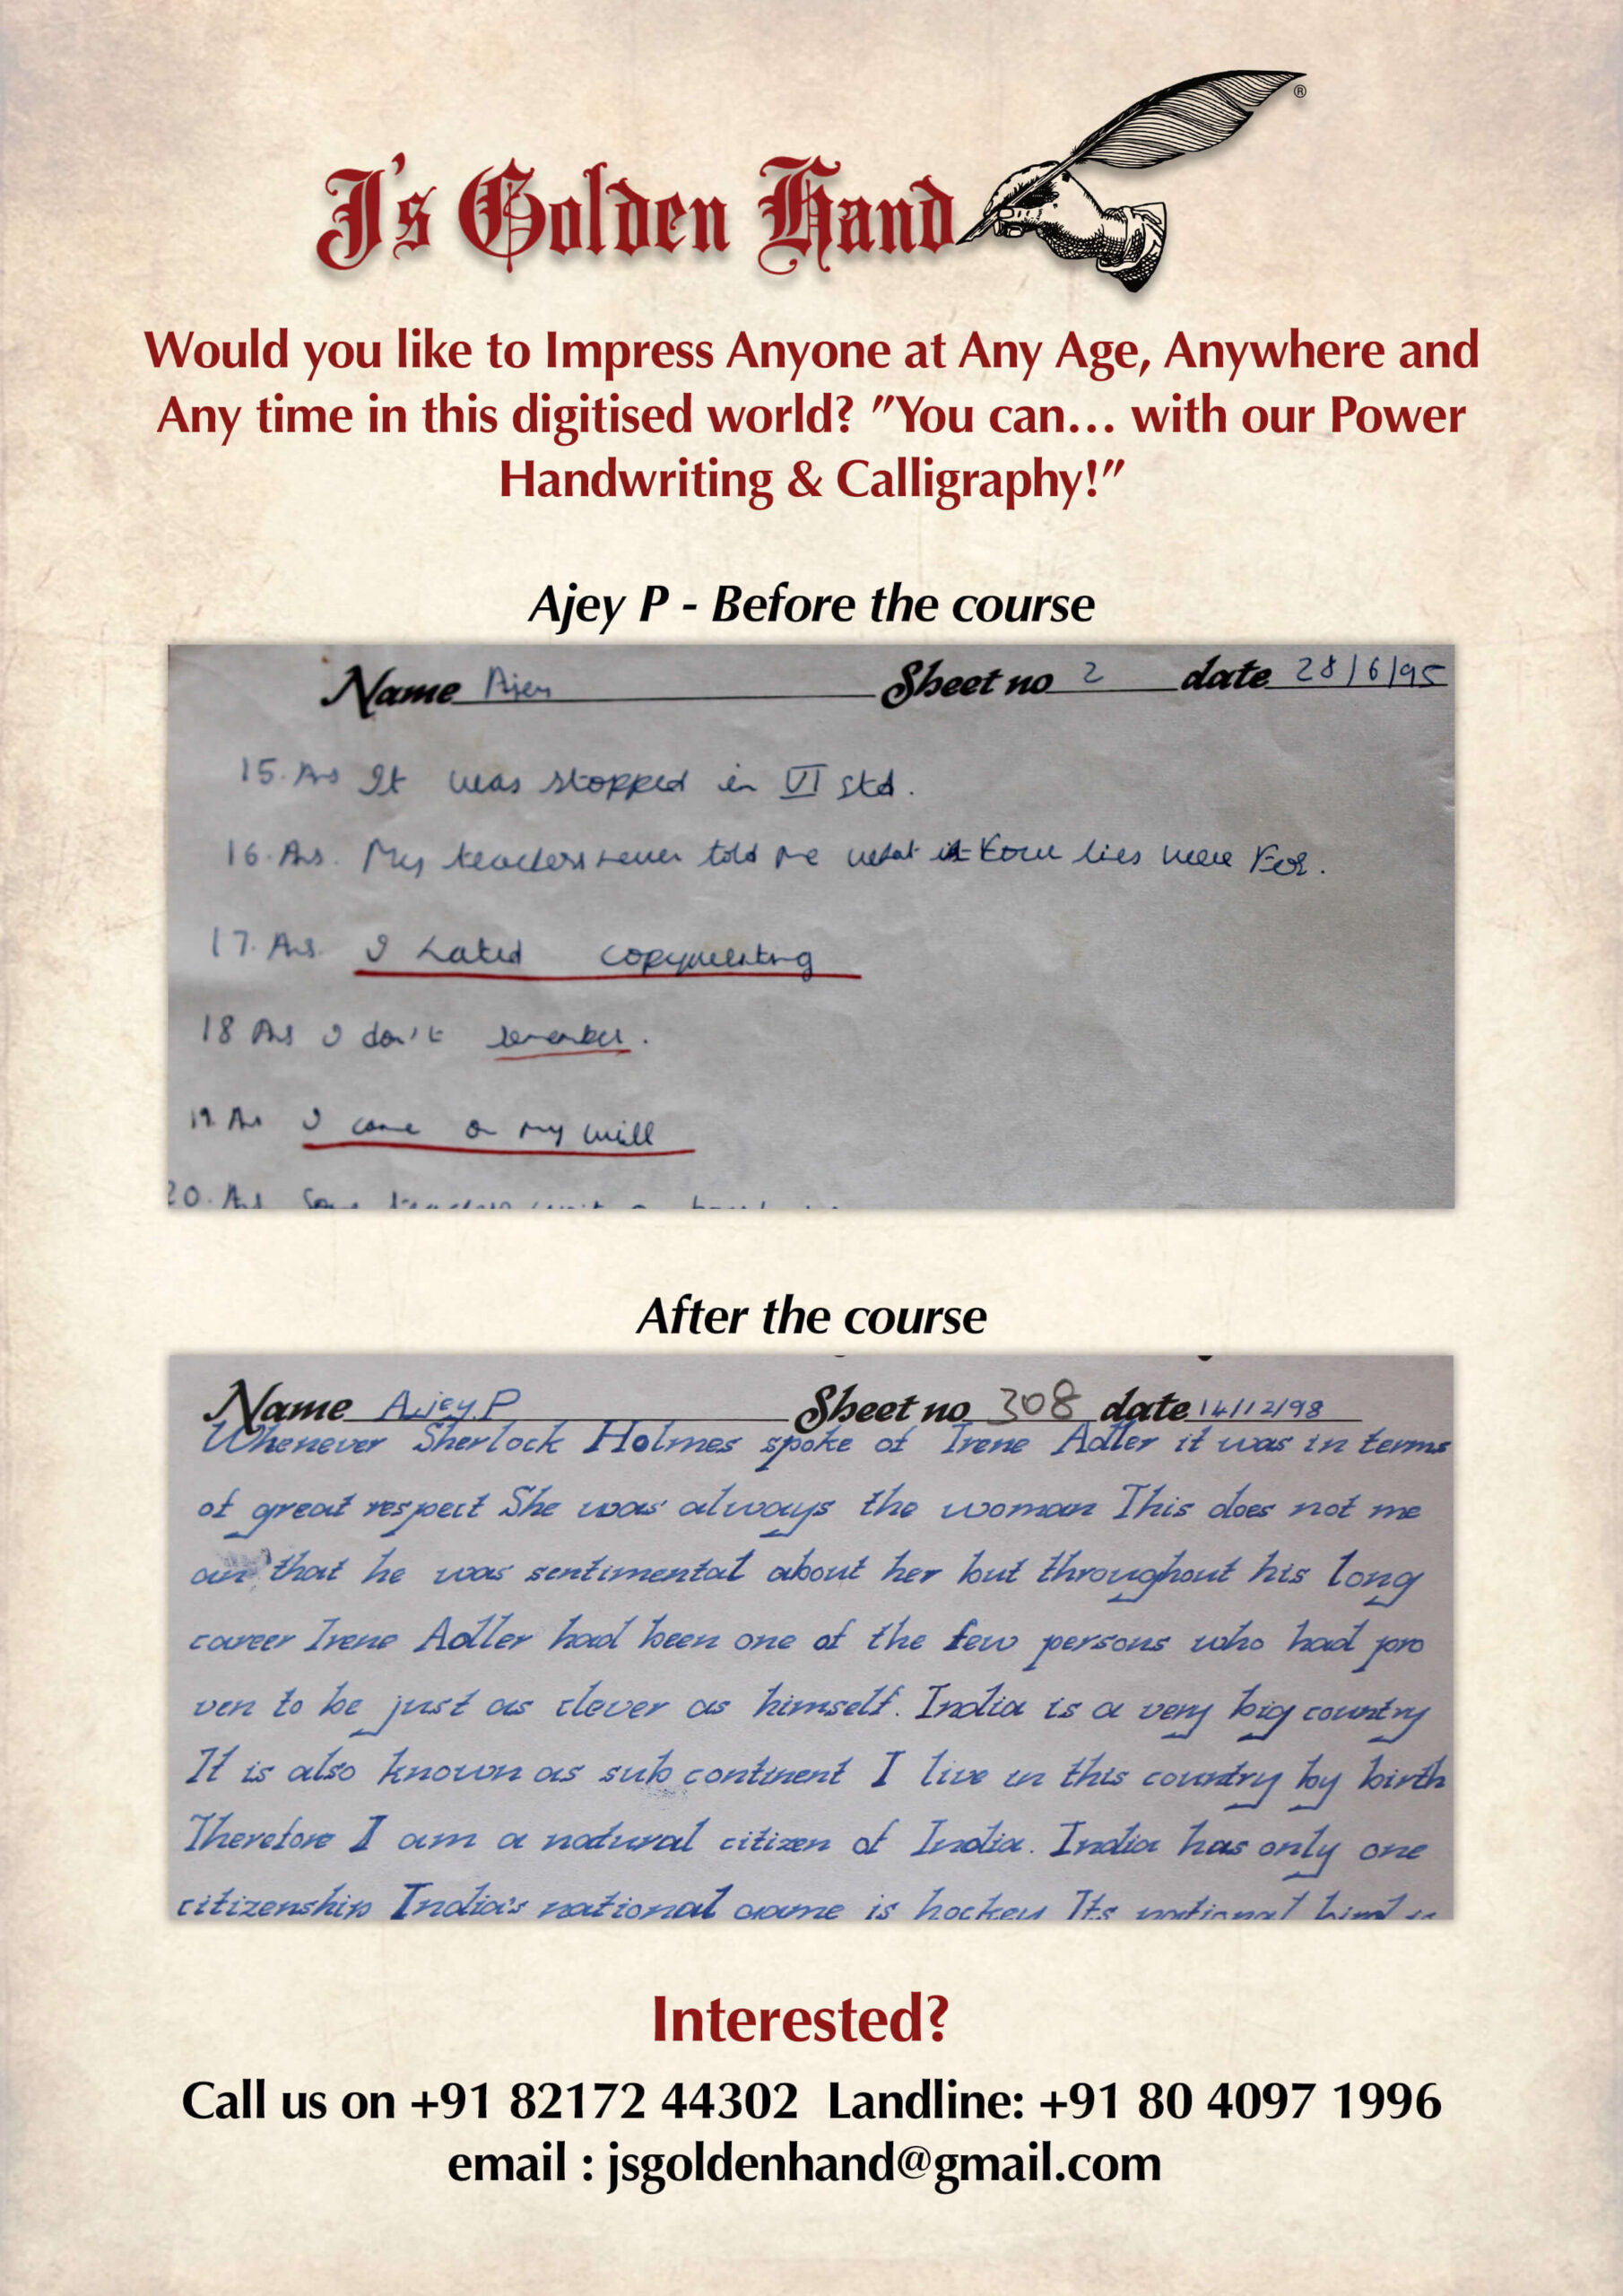 J's Golden Hand ®
Would you like to Impress Anyone at Any Age, Anywhere and
Any time in this digitised world? "You can... with our Power
Handwriting & Calligraphy!"
Ajey P - Before the course
Name Ajey Sheet no 2 date 28/6/95
15. Ans It was stopped in VI Std.
16. Ans. My teachers never told me what four lies were For.
17. Ans. I hated copywriting
18 Ans I don't remember.
19. Ans I came on my will
20. Ans Some teachers
After the course
Name Ajey.P Sheet no 308 date 14/12/98
Whenever Sherlock Holmes spoke of Irene Adler it was in terms
of great respect She was always the woman This does not me
an that he was sentimental about her but throughout his long
career Irene Adler had been one of the few persons who had pro
ven to be just as clever as himself. India is a very big country
It is also known as sub continent I live in this country by birth
Therefore I am a natural citizen of India. India has only one
citizenship India's national game is hockey Its national bird is
Interested?
Call us on +91 82172 44302 Landline: +91 80 4097 1996
email : jsgoldenhand@gmail.com